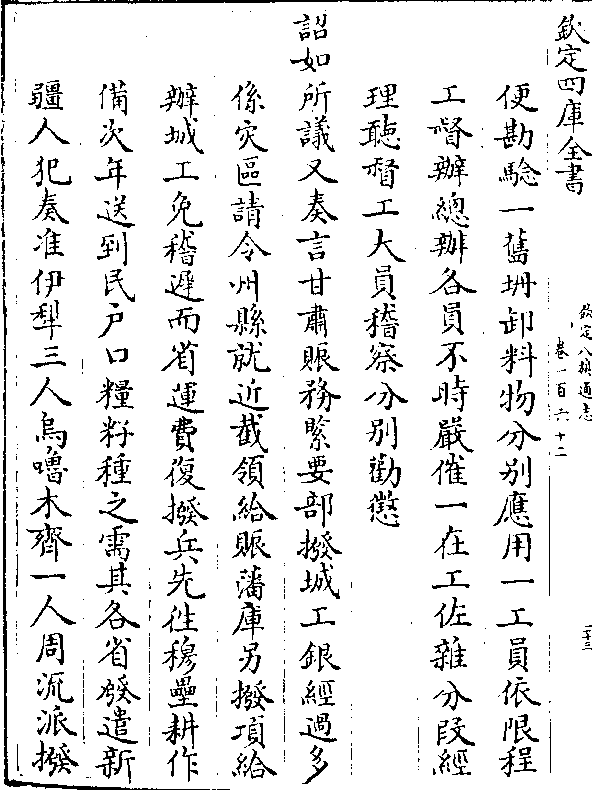 欽定四庫全書
欽定八旗通志
卷一百六十二
二十三
便勘驗一舊坍卸料物分别應用一工員依限程
工督辦總辦各員不時嚴催一在工佐雜分段經
理聽督工大員稽察分别勸懲
詔如所議又奏言甘肅賑務緊要部撥城工銀經過多
係災區請令州縣就近截領給賑藩庫另撥項給
辦城工免稽遲而省運費復撥兵先徃穆壘耕作
備次年送到民户口糧籽種之需其各省發遣新
疆人犯奏准伊犁三人烏嚕木齊一人周流派撥